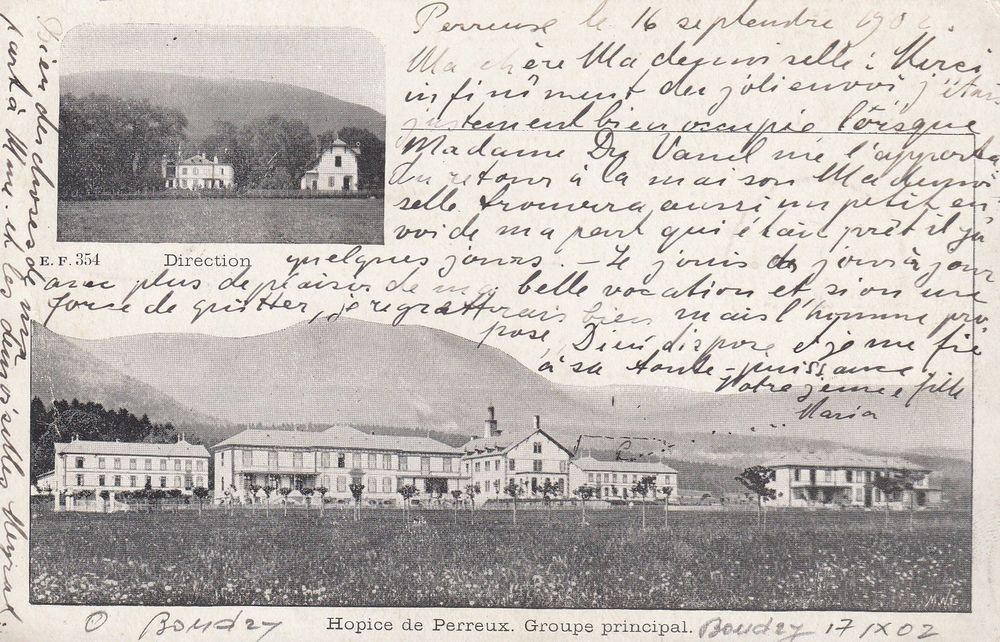 Perreux le 16 septembre 190
Ma chère Mademoiselle : Merci
infiniment du joli envoi j'étais
justement bien occupée lorsque
Madame Du l'apporta
du retour à la maison Mademoi
selle trouvera aussi un petit en-
voi de ma part qui était prêt il y a
quelques jours. – Je jouis de jour à jour
avec plus de plaisir de ma belle vocation et si on me
force de quitter, je regretterais bien mais l'homme pro
pose, Dieu dispose et je me fie
à sa toute-puissance,
Votre jeune fille
Maria
Bien des choses de ma
part à Mme et les demoiselles
E. F. 354
Direction
O Boudry
Hopice de Perreux. Groupe principal.
Boudry 17 IX 02